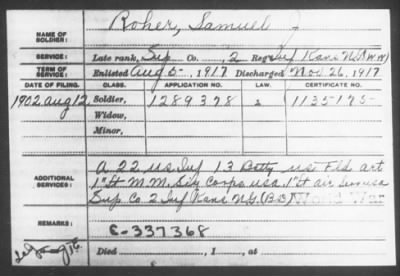 NAME OF SOLDIER: Roher, Samuel J
SERVICE: Late rank, Sup Co. 2 Reg't Inf Kans N.G. (W.W)
TERM OF SERVICE: Enlisted Aug 5-, 1917 Discharged Nov 26, 1917
DATE OF FILING. CLASS. APPLICATION NO. LAW. CERTIFICATE NO.
1902 Aug 12 Soldier, 1289378 1135175-
Widow,
Minor,
ADDITIONAL SERVICES: A 22 U.S. Inf 13 Batty U.S. Fld art
1" Lt M.M. Sig Corps U.S.A. 1" Lt air Serv U.S.A
Sup Co 2 Inf Kans N.G. (B.S) World War
REMARKS: C-337368
Died , 1 , at